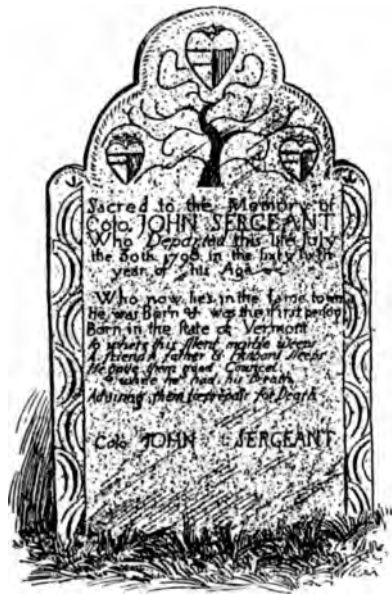 Sacred to the Memory of
Colo. JOHN SERGEANT
Who Departed this life July
the 30th 1798 in the sixty sixth
year of his Age
Who now lies in the same town
He was Born & was the first person
Born in the State of Vermont
lo where this silent marble weeps
A friend, father & Husband sleeps
He gave them good Councel
while he had his Breath
Advising them to prepair for Death
Colo. JOHN SERGEANT